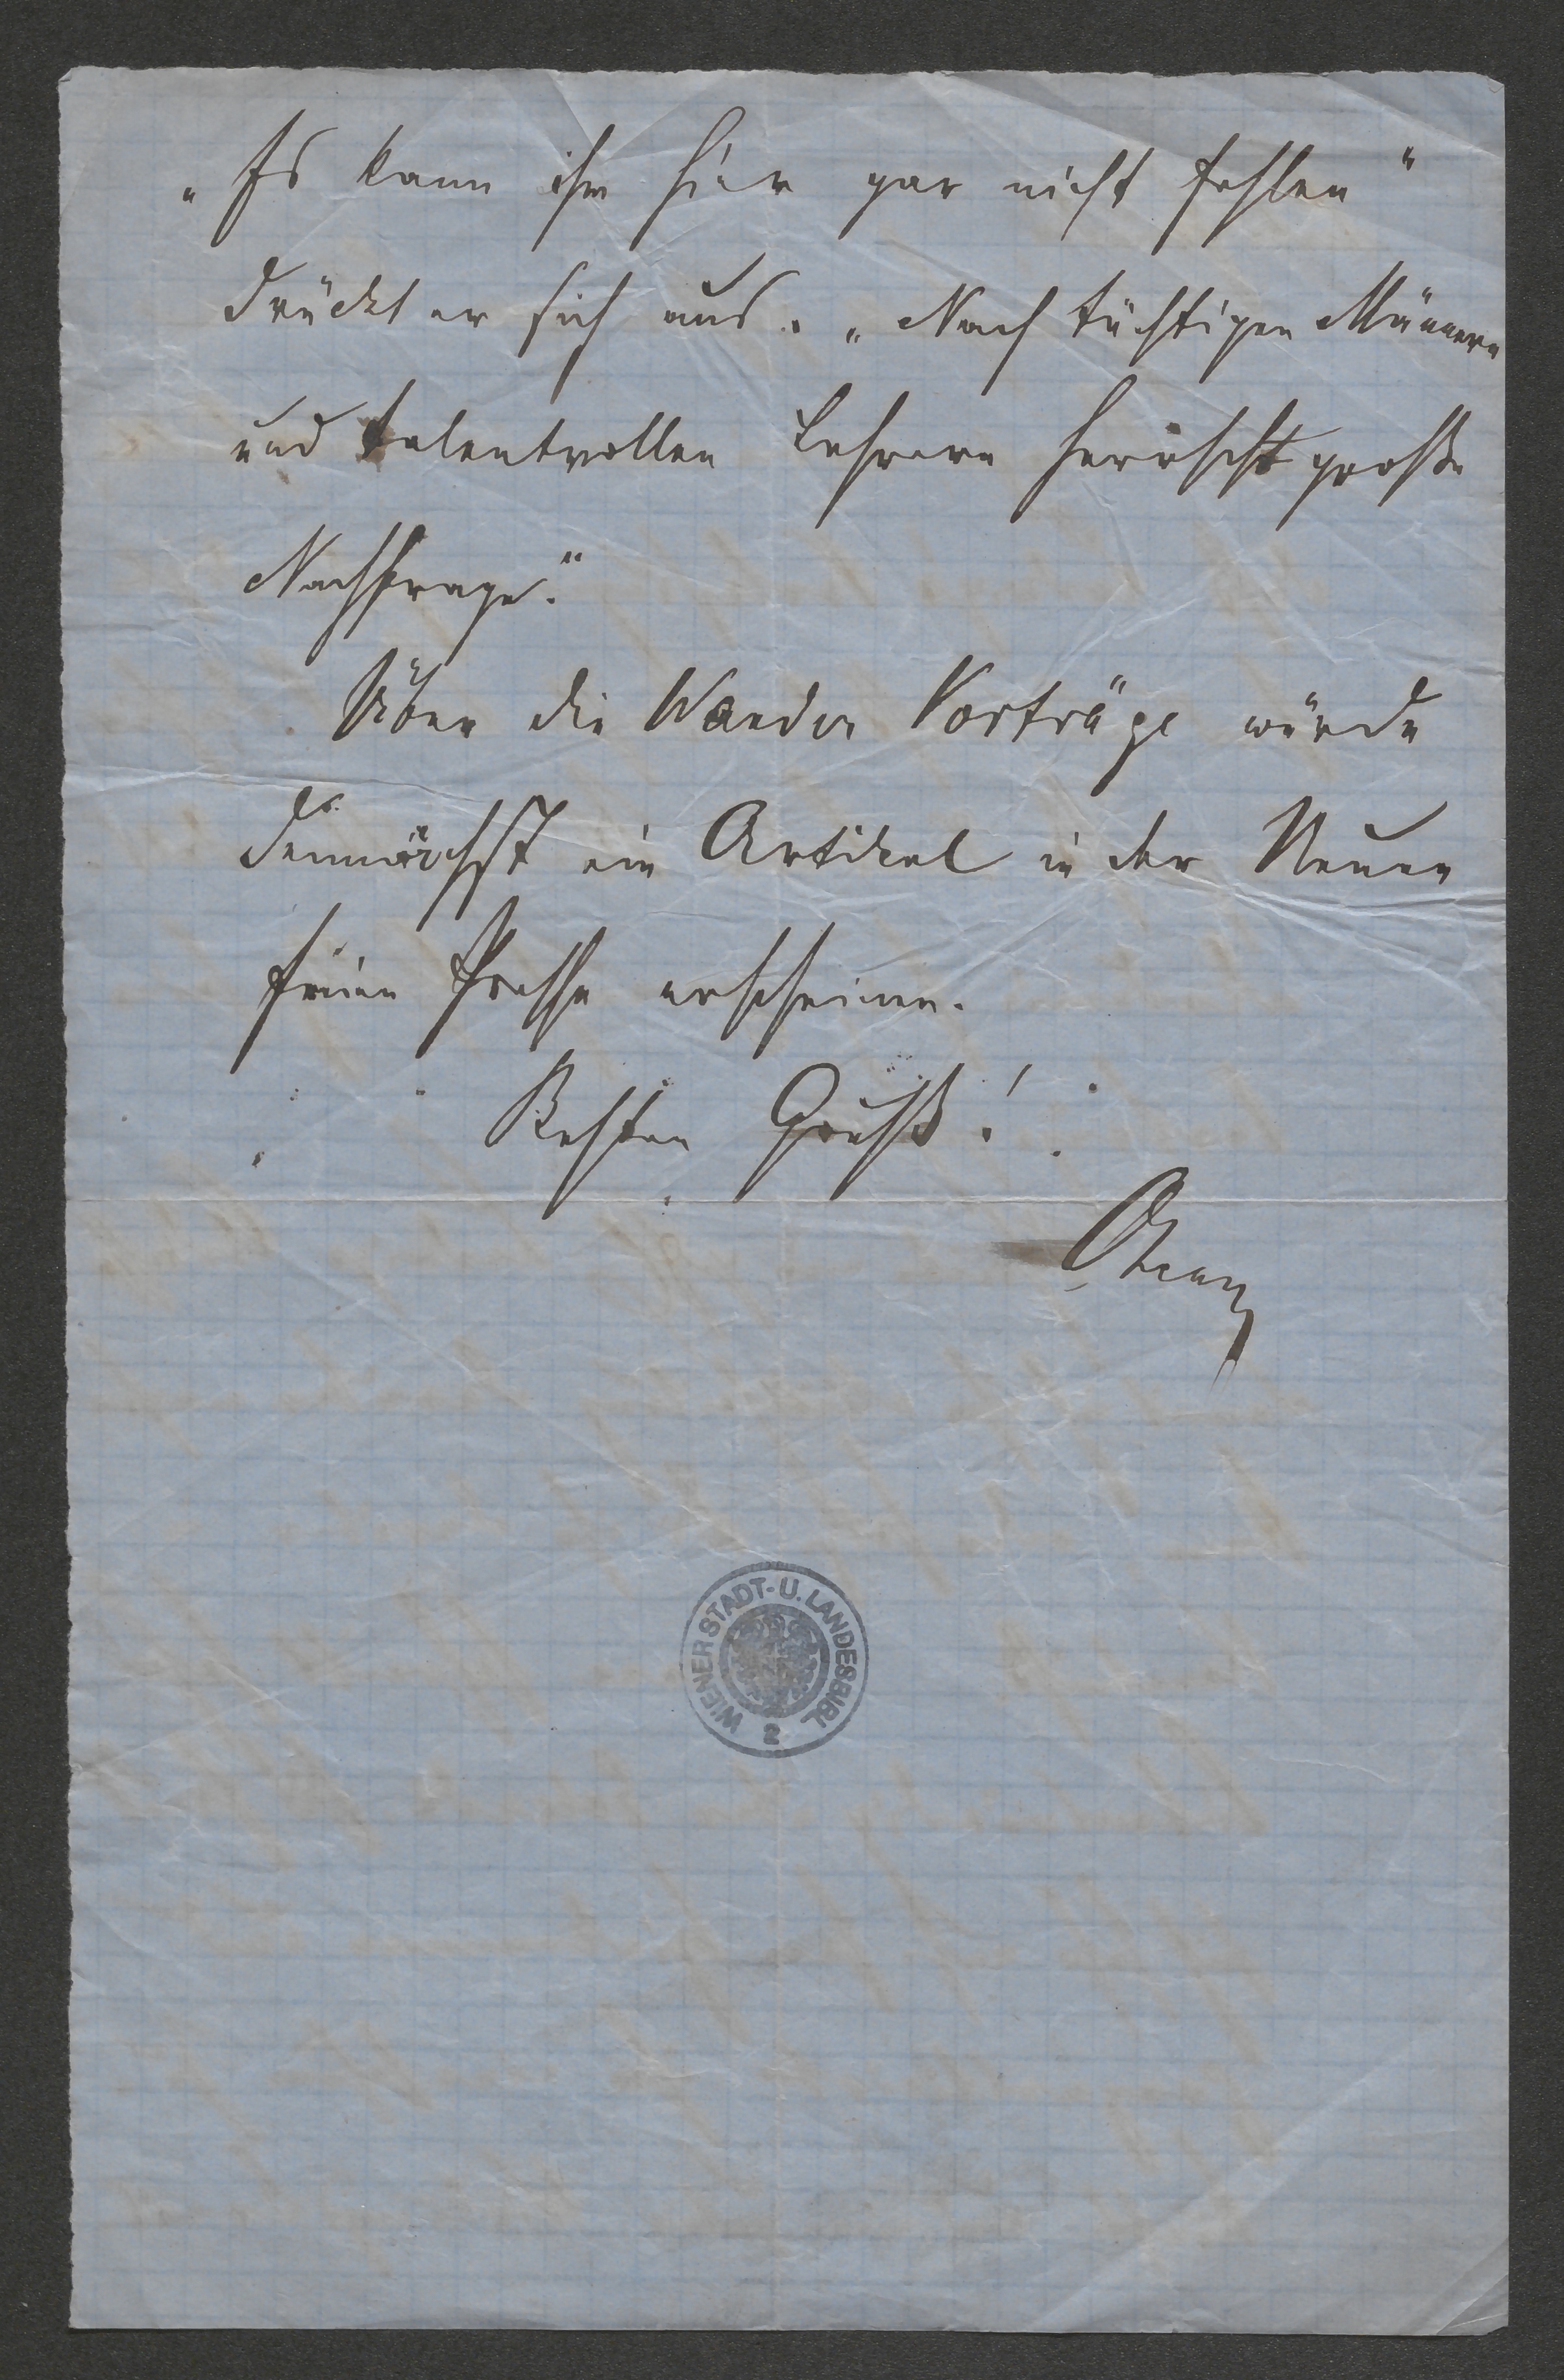 „Es kann ihm hier gar nicht fehlen"
drückt er sich aus. „Nach tüchtigen Männern
und talentvollen Lehrern herrscht große
Nachfrage."
Über die Wander Vorträge würde
demnächst ein Artikel in der Neuen
freien Presse erscheinen.
Besten Gruß!
WIENER STADT- U. LANDESBIBL.
2